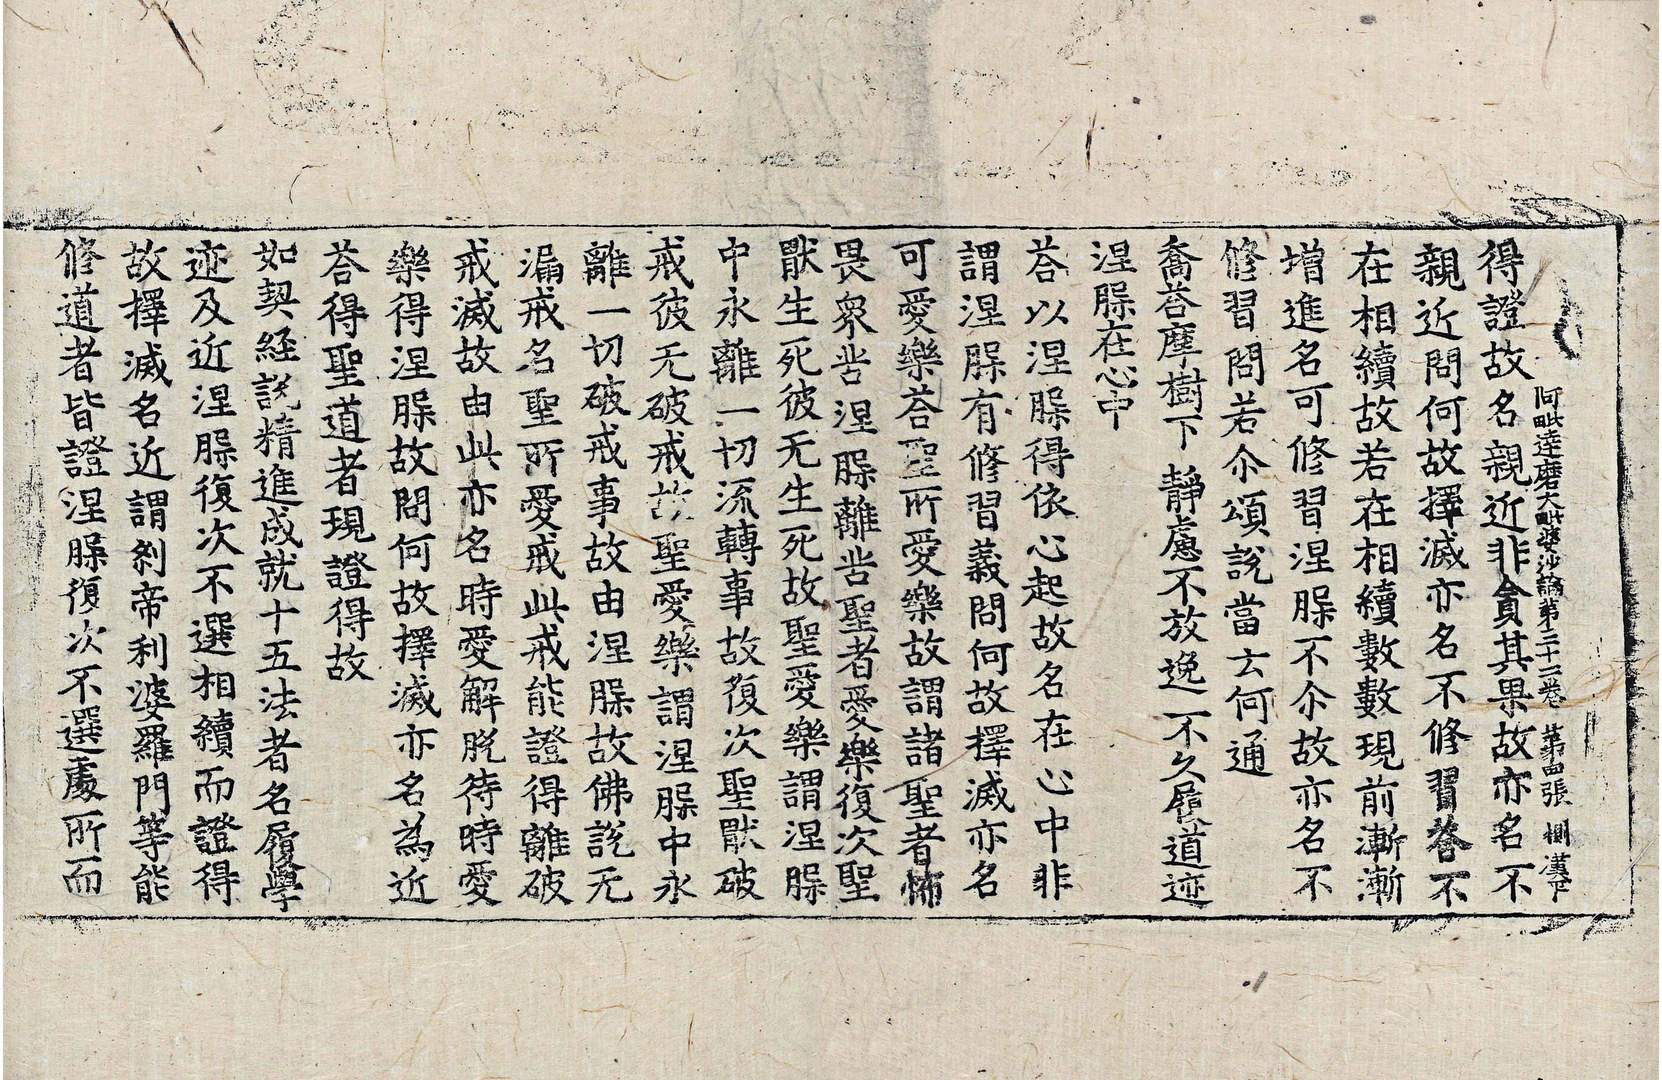 阿毗達磨大毗婆沙論第三十二卷 第四張 惻 漢下
得證故名親近非貪其果故亦名不
親近問何故擇滅亦名不修習荅不
在相續故若在相續數數現前漸漸
增進名可修習涅槃不尒故亦名不
修習問若尒頌說當云何通
喬荅摩樹下 靜慮不放逸 不久履道迹
涅槃在心中
荅以涅槃得依心起故名在心中非
謂涅槃有修習義問何故擇滅亦名
可愛樂荅聖所愛樂故謂諸聖者怖
畏衆苦涅槃離苦聖者愛樂復次聖
猒生死彼无生死故聖愛樂謂涅槃
中永離一切流轉事故復次聖猒破
戒彼无破戒故聖愛樂謂涅槃中永
離一切破戒事故由涅槃故佛說无
漏戒名聖所愛戒此戒能證得離破
戒滅故由此亦名時愛解脫待時愛
樂得涅槃故問何故擇滅亦名為近
荅得聖道者現證得故
如契經說精進成就十五法者名履學
迹及近涅槃復次不選相續而證得
故擇滅名近謂刹帝利婆羅門等能
修道者皆證涅槃復次不選處所而